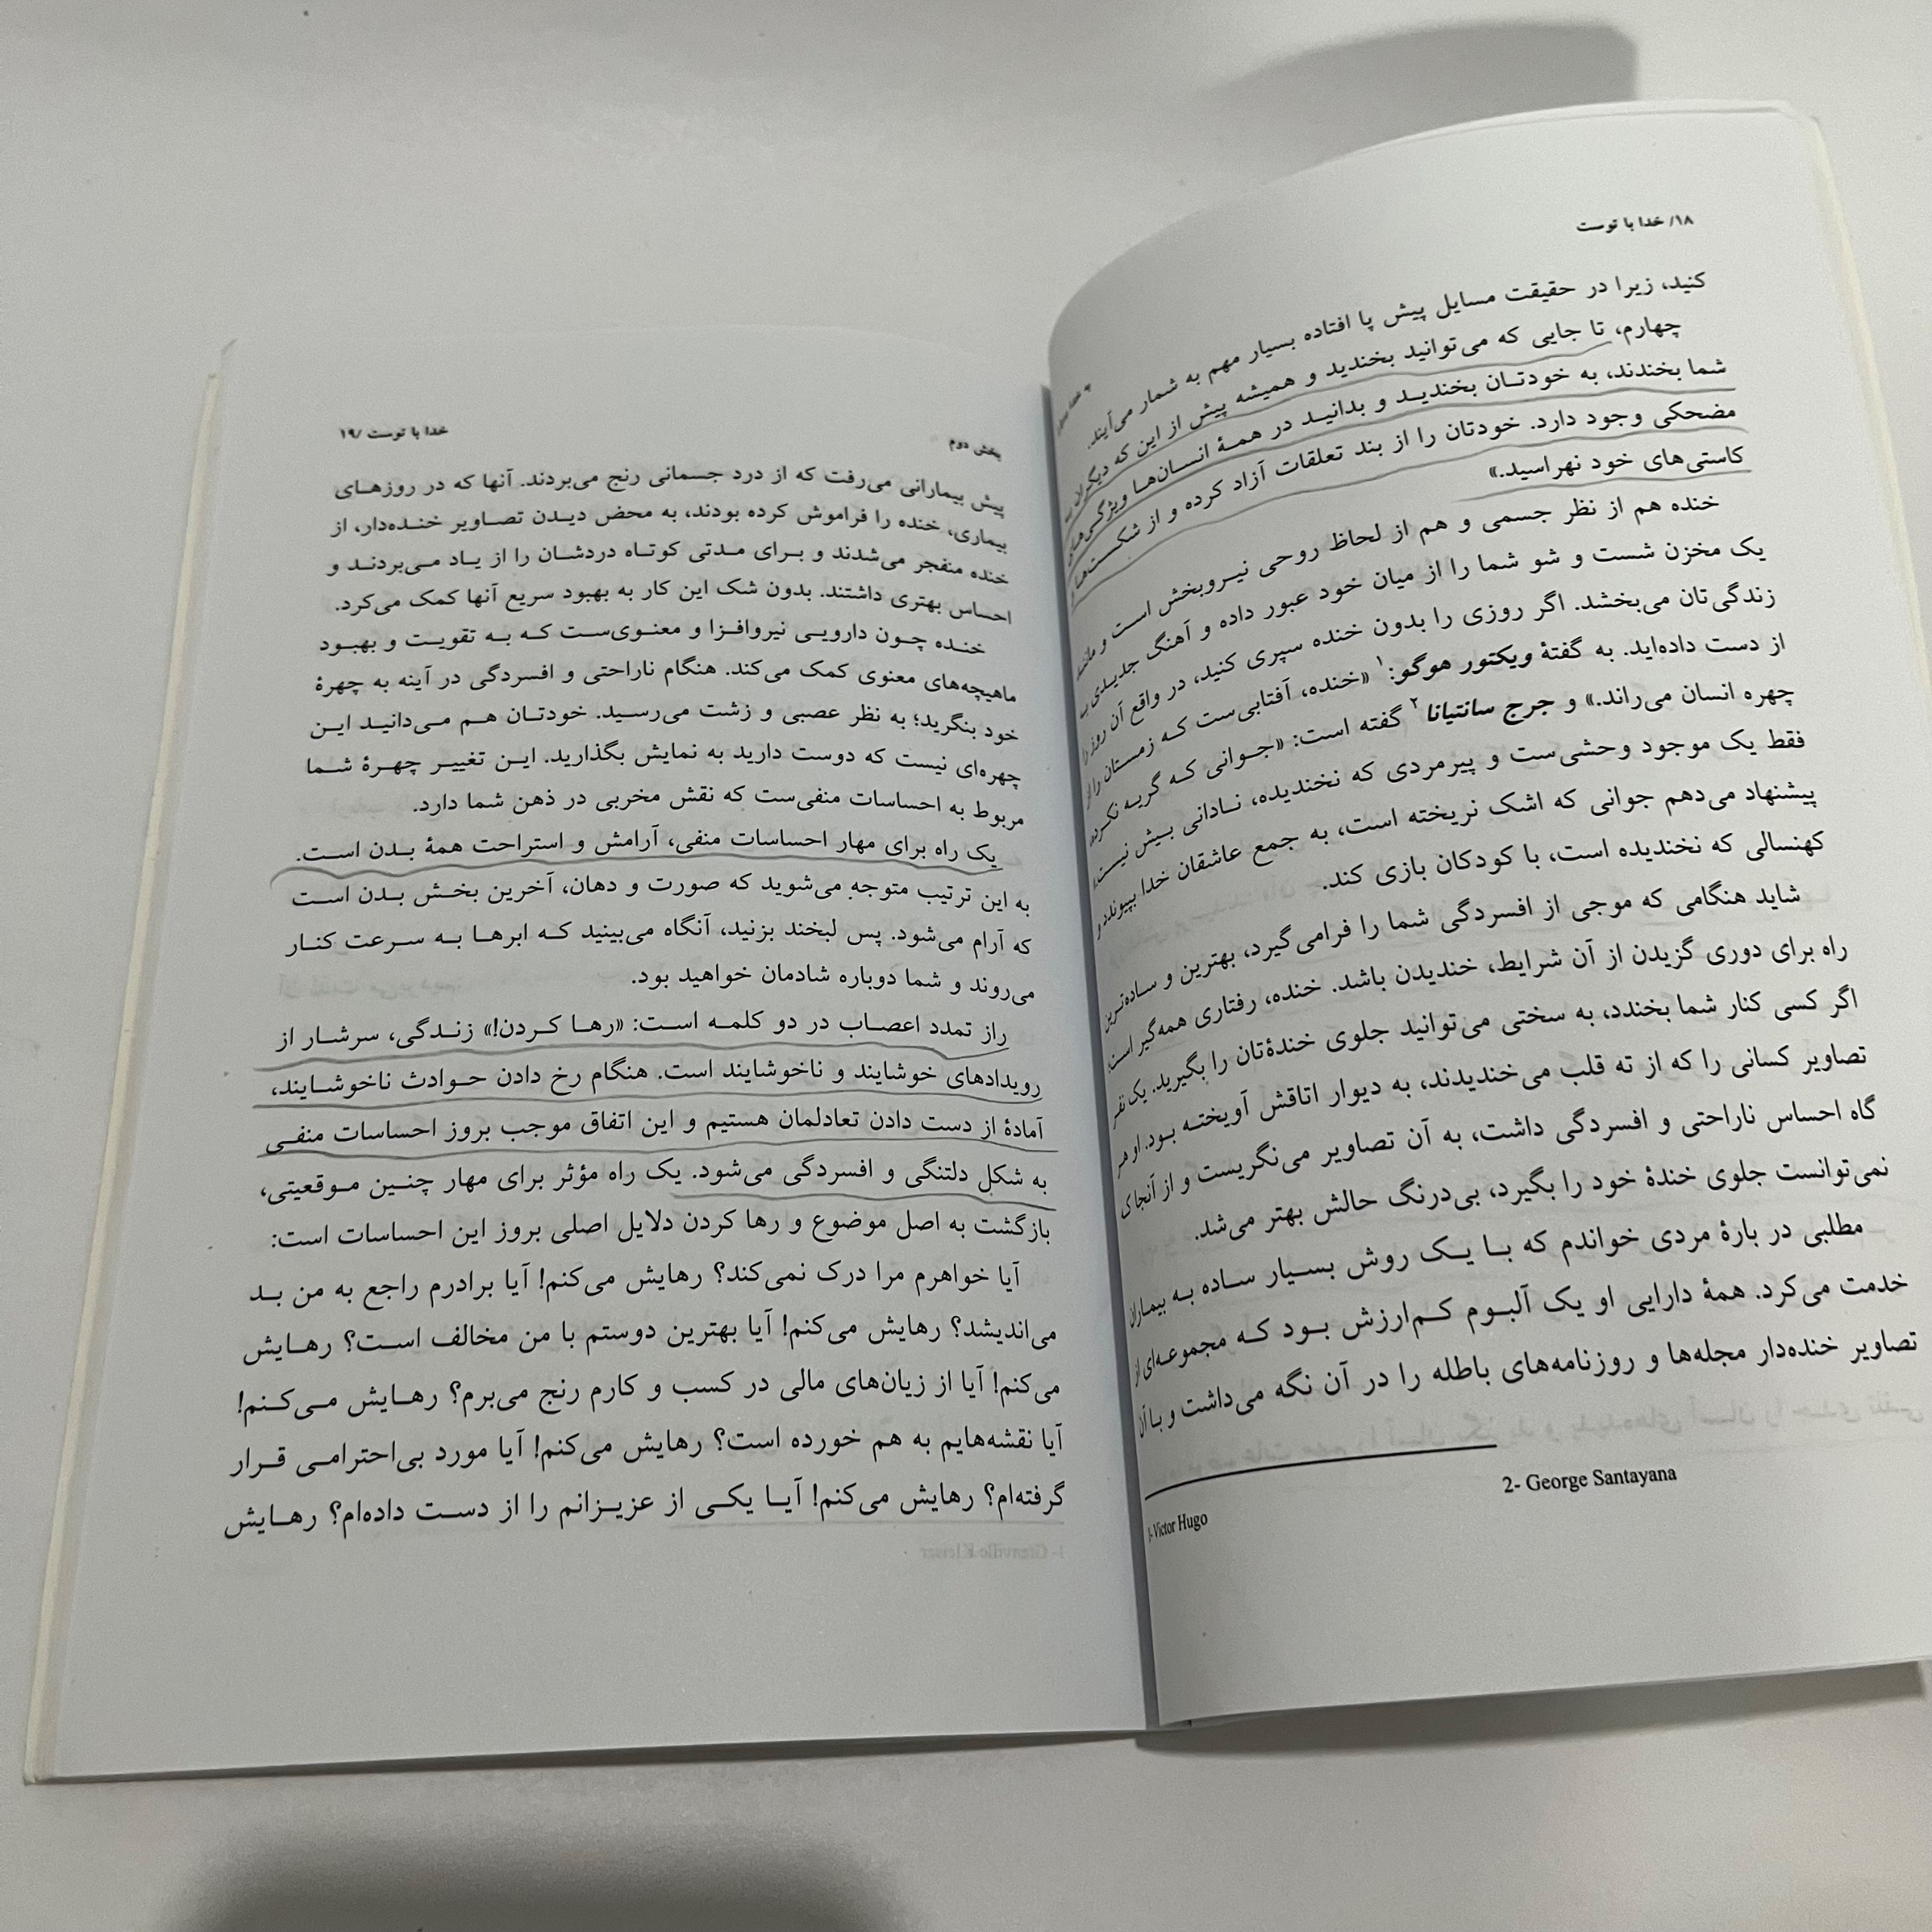 ۱۸/ خدا با توست
کنید، زیرا در حقیقت مسایل پیش پا افتاده بسیار مهم به شمار می‌آیند.
چهارم، تا جایی که می‌توانید بخندید و همیشه پیش از این که دیگران به
شما بخندند، به خودتان بخندید و بدانید در همهٔ انسان‌ها ویژگی‌های
مضحکی وجود دارد. خودتان را از بند تعلقات آزاد کرده و از شکست‌ها و
کاستی‌های خود نهراسید.»
خنده هم از نظر جسمی و هم از لحاظ روحی نیروبخش است و مانند
یک مخزن شست و شو شما را از میان خود عبور داده و آهنگ جدیدی به
زندگی‌تان می‌بخشد. اگر روزی را بدون خنده سپری کنید، در واقع آن روز را
از دست داده‌اید. به گفتهٔ ویکتور هوگو:۱ «خنده، آفتابی‌ست که زمستان را از
چهره انسان می‌راند.» و جرج سانتیانا۲ گفته است: «جوانی که گریه نکرده
فقط یک موجود وحشی‌ست و پیرمردی که نخندیده، نادانی بیش نیست.»
پیشنهاد می‌دهم جوانی که اشک نریخته است، به جمع عاشقان خدا بپیوندد و
کهنسالی که نخندیده است، با کودکان بازی کند.
شاید هنگامی که موجی از افسردگی شما را فرامی‌گیرد، بهترین و ساده‌ترین
راه برای دوری گزیدن از آن شرایط، خندیدن باشد. خنده، رفتاری همه‌گیر است؛
اگر کسی کنار شما بخندد، به سختی می‌توانید جلوی خنده‌تان را بگیرید. یک نفر
تصاویر کسانی را که از ته قلب می‌خندیدند، به دیوار اتاقش آویخته بود. او هر
گاه احساس ناراحتی و افسردگی داشت، به آن تصاویر می‌نگریست و از آنجا که
نمی‌توانست جلوی خندهٔ خود را بگیرد، بی‌درنگ حالش بهتر می‌شد.
مطلبی در بارهٔ مردی خواندم که با یک روش بسیار ساده به بیماران
خدمت می‌کرد. همهٔ دارایی او یک آلبوم کم‌ارزش بود که مجموعه‌ای از
تصاویر خنده‌دار مجله‌ها و روزنامه‌های باطله را در آن نگه می‌داشت و با آن
1- Victor Hugo
2- George Santayana
بخش دوم
خدا با توست /۱۹
پیش بیمارانی می‌رفت که از درد جسمانی رنج می‌بردند. آنها که در روزهای
بیماری، خنده را فراموش کرده بودند، به محض دیدن تصاویر خنده‌دار، از
خنده منفجر می‌شدند و برای مدتی کوتاه دردشان را از یاد می‌بردند و
احساس بهتری داشتند. بدون شک این کار به بهبود سریع آنها کمک می‌کرد.
خنده چون دارویی نیروافزا و معنوی‌ست که به تقویت و بهبود
ماهیچه‌های معنوی کمک می‌کند. هنگام ناراحتی و افسردگی در آینه به چهرهٔ
خود بنگرید؛ به نظر عصبی و زشت می‌رسید. خودتان هم می‌دانید این
چهره‌ای نیست که دوست دارید به نمایش بگذارید. این تغییر چهرهٔ شما
مربوط به احساسات منفی‌ست که نقش مخربی در ذهن شما دارد.
یک راه برای مهار احساسات منفی، آرامش و استراحت همهٔ بدن است.
به این ترتیب متوجه می‌شوید که صورت و دهان، آخرین بخش بدن است
که آرام می‌شود. پس لبخند بزنید، آنگاه می‌بینید که ابرها به سرعت کنار
می‌روند و شما دوباره شادمان خواهید بود.
راز تمدد اعصاب در دو کلمه است: «رها کردن!» زندگی، سرشار از
رویدادهای خوشایند و ناخوشایند است. هنگام رخ دادن حوادث ناخوشایند،
آمادهٔ از دست دادن تعادلمان هستیم و این اتفاق موجب بروز احساسات منفی
به شکل دلتنگی و افسردگی می‌شود. یک راه مؤثر برای مهار چنین موقعیتی،
بازگشت به اصل موضوع و رها کردن دلایل اصلی بروز این احساسات است:
آیا خواهرم مرا درک نمی‌کند؟ رهایش می‌کنم! آیا برادرم راجع به من بد
می‌اندیشد؟ رهایش می‌کنم! آیا بهترین دوستم با من مخالف است؟ رهایش
می‌کنم! آیا از زیان‌های مالی در کسب و کارم رنج می‌برم؟ رهایش می‌کنم!
آیا نقشه‌هایم به هم خورده است؟ رهایش می‌کنم! آیا مورد بی‌احترامی قرار
گرفته‌ام؟ رهایش می‌کنم! آیا یکی از عزیزانم را از دست داده‌ام؟ رهایش